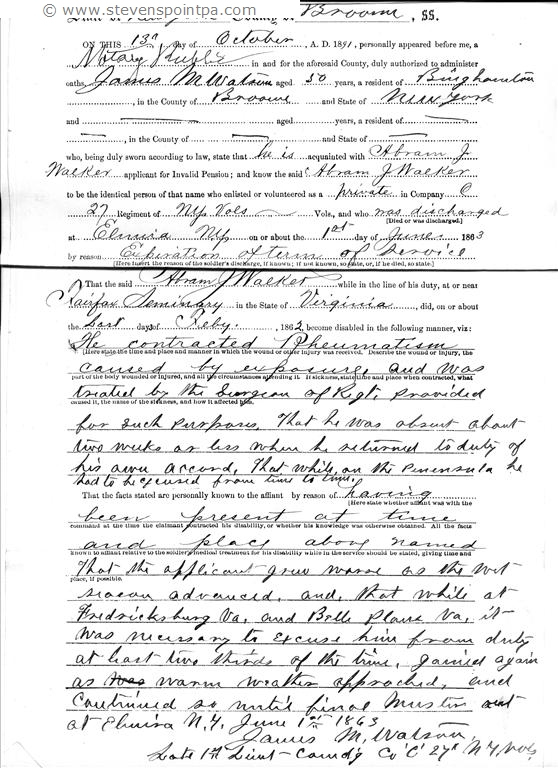 © www.stevenspointpa.com
State of New York County of Broom , SS.
ON THIS 13th day of October , A. D. 1891, personally appeared before me, a
Notary Public in and for the aforesaid County, duly authorized to administer
oaths, James M Watson aged 50 years, a resident of Binghamton
, in the County of Broome and State of New York
and aged years, a resident of
, in the County of and State of
who, being duly sworn according to law, state that he is acquainted with Abram J
Walker applicant for Invalid Pension; and know the said Abram J Walker
to be the identical person of that name who enlisted or volunteered as a private in Company C
27 Regiment of NY Vols Vols., and who was discharged
[Died or was discharged]
at Elmira NY on or about the 1st day of June 1863
by reason Expiration of term of Service
[Here insert the reason of the soldier's discharge, if known; if not known, so state, or, if he died, so state.]
That the said Abram J Walker while in the line of his duty, at or near
Fairfax Seminary in the State of Virginia , did, on or about
the last day of Feby. , 1862, become disabled in the following manner, viz:
He contracted Rheumatism
[Here state the time and place and manner in which the wound or other injury was received. Describe the wound or injury, the
caused by exposure, and was
part of the body wounded or injured, and all the circumstances attending it. If sickness, state time and place when contracted, what
treated by the Surgeon of Regt. provided
caused it, the name of the sickness, and how it affected him.
for such purposes, That he was absent about
two weeks or less when he returned to duty of
his own accord, That while on the Peninsula he
had to be excused from time to time.
That the facts stated are personally known to the affiant by reason of having
[Here state whether affiant was with the
been present at time
command at the time the claimant contracted his disability, or whether his knowledge was otherwise obtained. All the facts
and place above named
known to affiant relative to the soldier's medical treatment for his disability while in the service should be stated, giving time and
That the applicant grew worse as the wet
place, if possible.
season advanced, and, that while at
Fredricksburg Va, and Belle Plane Va, it
was necessary to excuse him from duty
at least two thirds of the time, gained again
as warm weather approched, and
continued so until final Muster out
at Elmira N.Y. June 1st 1863
James M, Watson,
Late 1st Lieut - Comdg Co "C" 27th N.Y. Vols